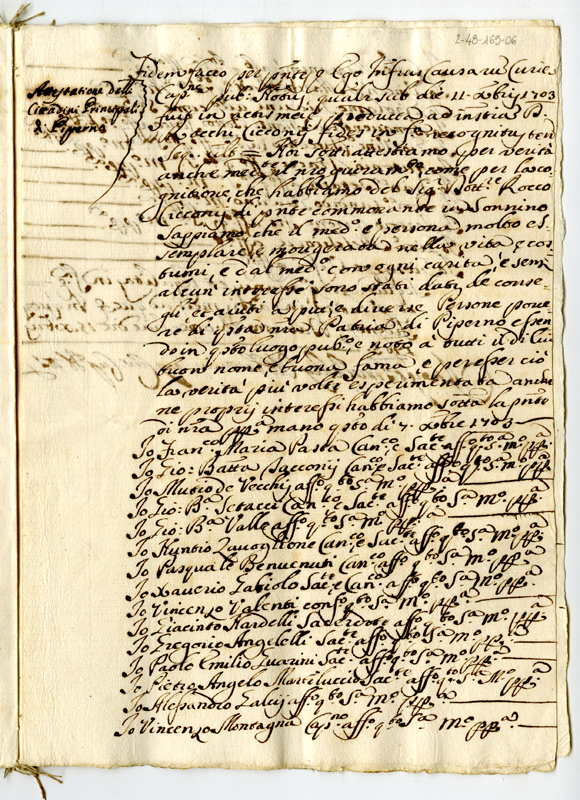 2-48-169-06
Attestatione delli
Cittadini Principali
di Piperno
Fidem facio per pnte q Ego Infrus Causarū Curie
Capne pub. Not. qualr sub die 11 Xbris 1703
fuit in actis meis producta ad instria D.
Rocchi Cicconij fides in fa recognita, ten
Noi sotti attestiamo per verità
anche medte il nro giuramto come per la co
gnitione che habbiamo del Sig. Dottre Rocco
Cicconij di pnte commorante in Sonnino
sappiamo che il medo è persona molto es
semplare, e morigerata nella vita, e cos
tumi, e dal medo con ogni carità, e senz
alcun' interesse sono stati dati de conse
gli, et aiuti a più, e diverse Persone pove
re di qsta nra Patria di Piperno essen
do in qsto luogo pubco e noto a tutti il di lui
buon nome, e buona fama, e per esser ciò
la verità più volte esperimentata anche
ne proprij interessi habbiamo sotta la pnte
di nra ppa mano qsto di 7. Xbre 1703
Io Franco Maria Pasta Canco e Sacte affo qto sa mo ppa
Io Gio: Batta Jacconij Canco e Sacte affo qto sa mo ppa
Io Mutio de Vecchij affo qto sa mo ppa
Io Gio: Ba Setacci Canco e Sacte affo qto sa mo ppa
Io Gio: Ba Valle affo qto sa mo ppa
Io Nuntio Zavaglione Canco e Sacte affo qto sa mo ppa
Io Pasquale Benvenuti Canco affo qto sa mo ppa
Io Xaverio Gabiolo Sacte e Canco affo qto sa mo ppa
Io Vincenzo Valenti confo qto sa mo ppa
Io Giacinto Nardelli Sacerdote affo qto sa mo ppa
Io Gregorio Angelelli Sacte affo qto sa mo ppa
Io Paolo Emilio Guarini Sacte affo qto sa mo ppa
Io Pietro Angelo Martellucci Sacte affo qto sa mo ppa
Io Alesandro Zalcij affo qto sa mo ppa
Io Vincenzo Montagna Capno affo qto sa mo ppa